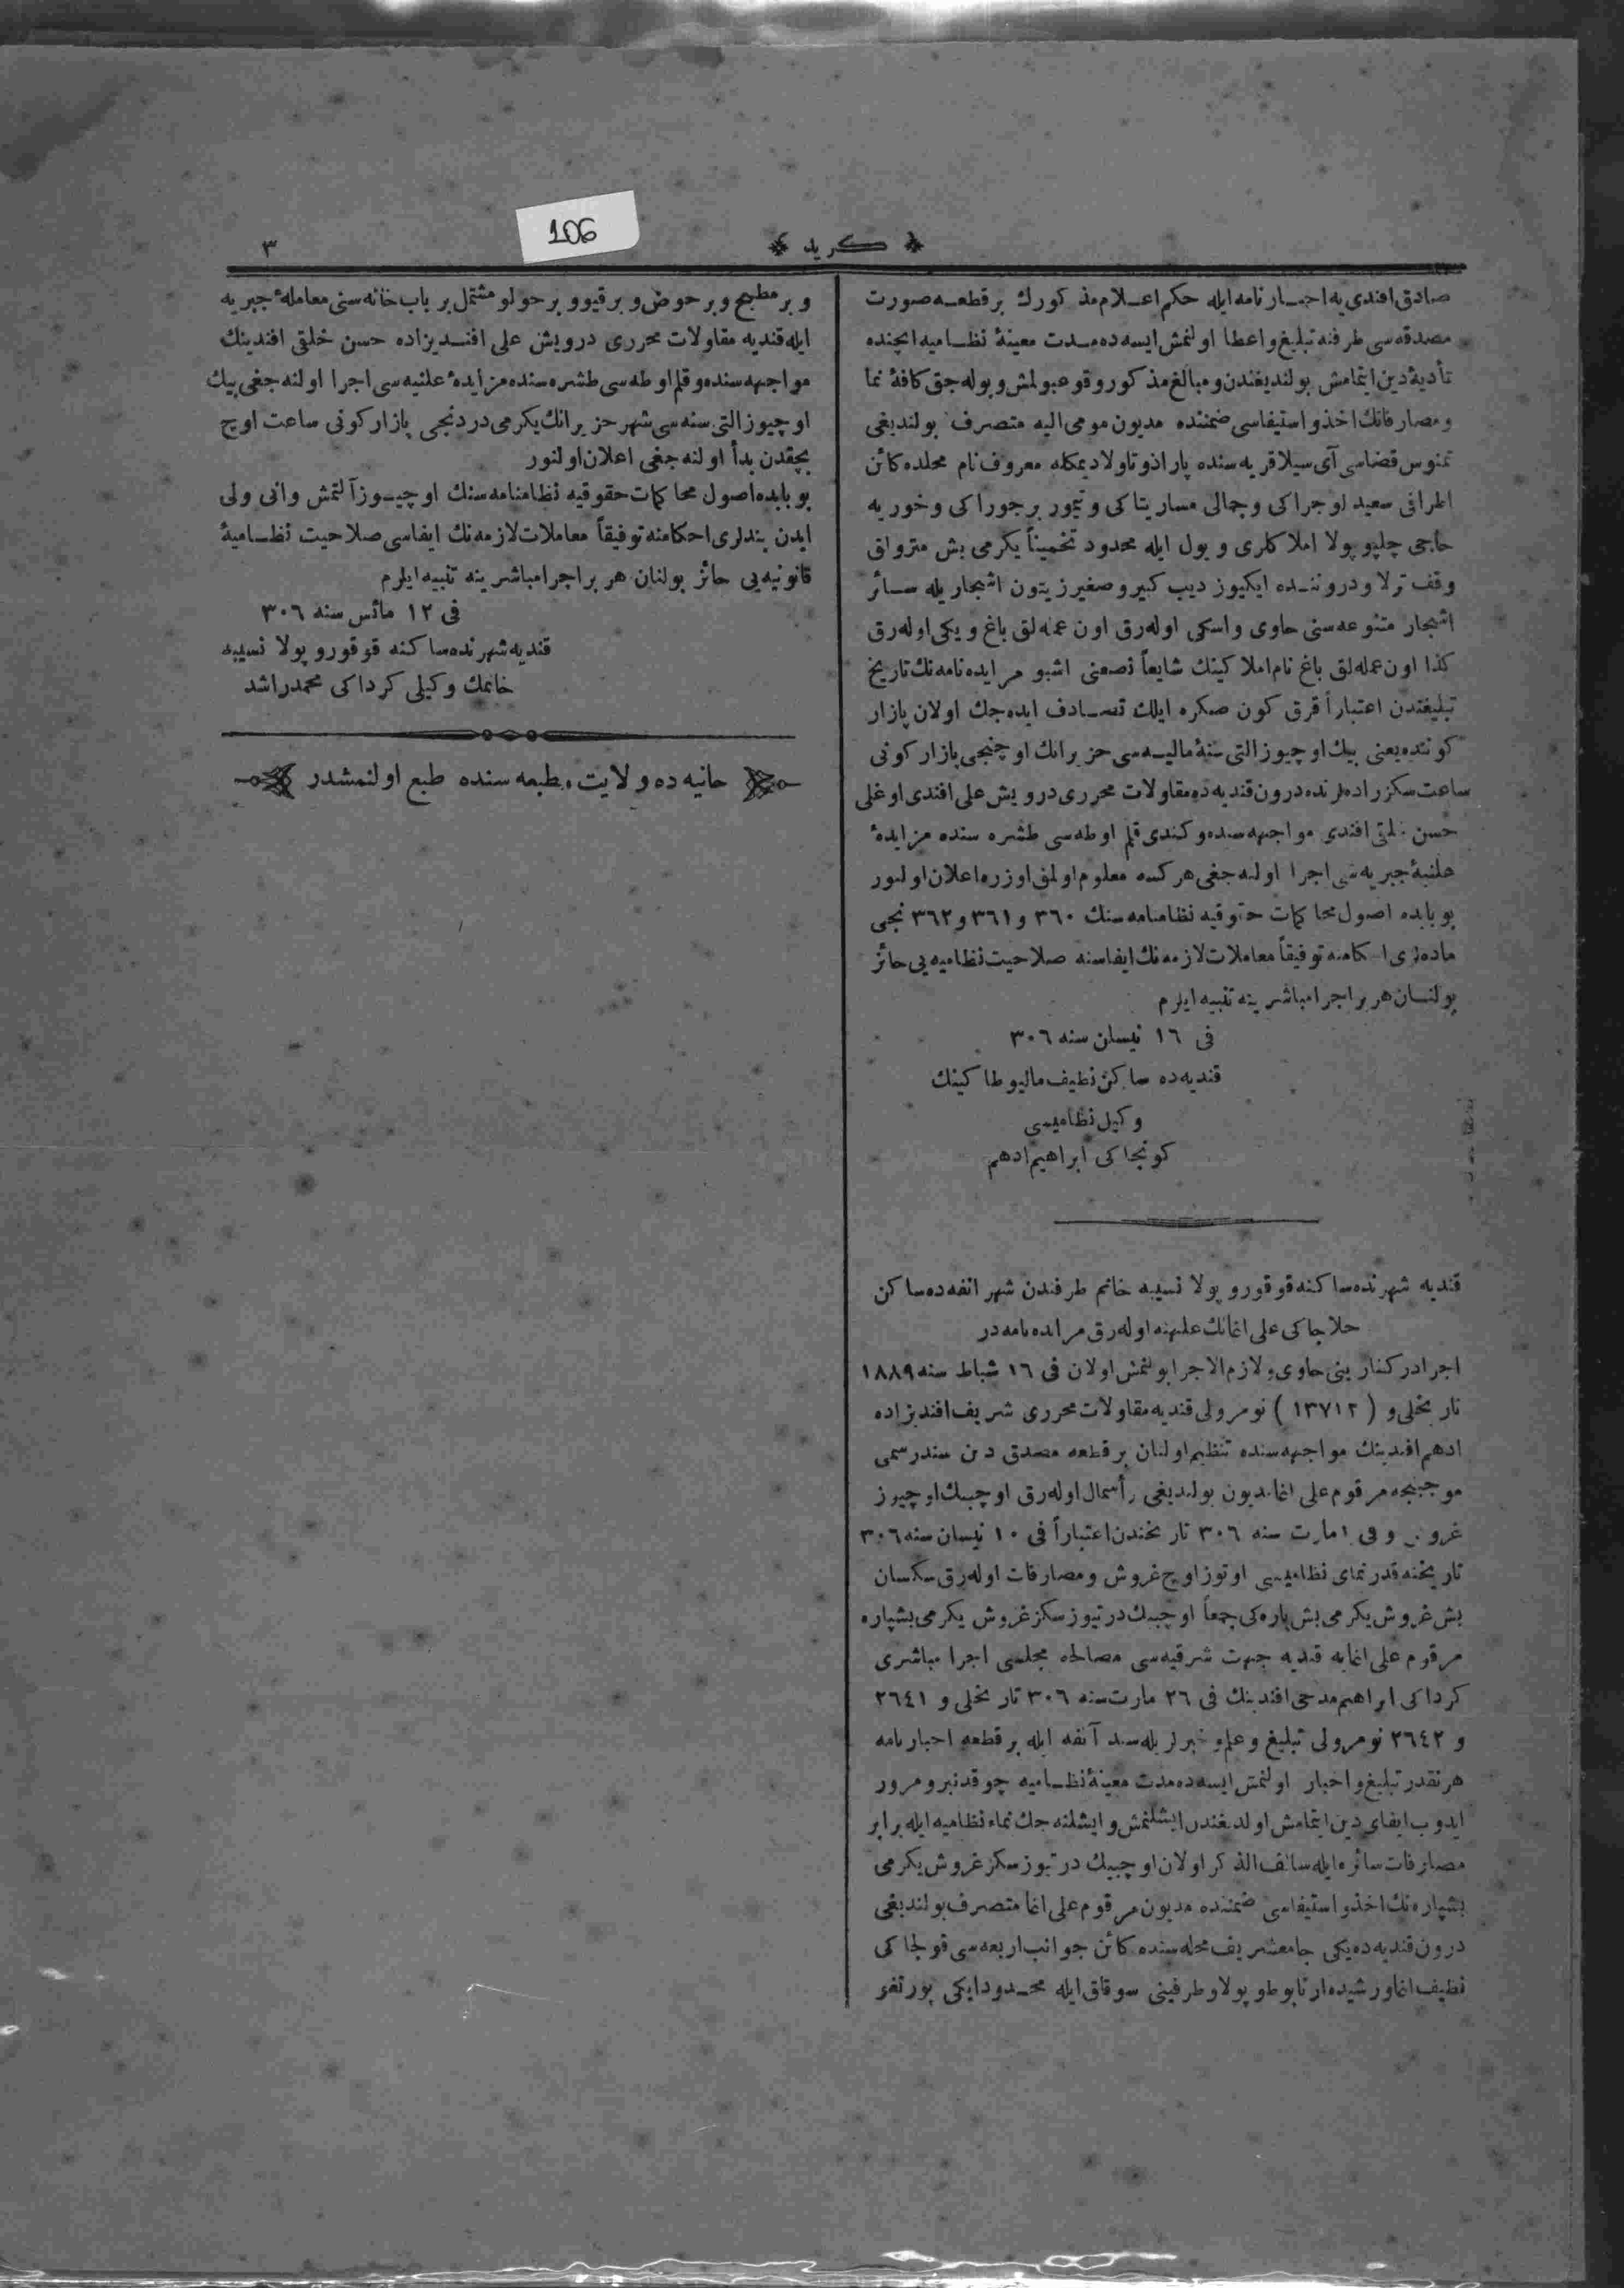 106
كريد
٣
صادق افندی‌یه اخبارنامه ایله حکم اعلام مذکورك بر قطعه صورت
مصدقه‌سی طرفنه تبلیغ و اعطا اولنمش ایسه‌ده مدت معینهٔ نظامیه ایچنده
تأدیهٔ دین ایتمامش بولندیغندن و مبالغ مذکور وقوعبولمش و بوله‌جق کافهٔ نما
و مصارفانك اخذ و استیفاسی ضمننده مدیون مومی الیه متصرف بولندیغی
تمنوس قضاسی آی سیلا قریه‌سنده پاراذوتاولاد یمکله معروف نام محلده کائن
اطرافی سعید لوجراکی و جمالی مساریتاکی و تیمور برجوراکی و خوریه
حاجی چلپو پولا املاکلری و یول ایله محدود تخمیناً یکرمی بش متروانی
وقف ترلا و دروننده ایکیوز دیب کبیر و صغیر زیتون اشجاریله سائر
اشجار متنوعه‌سنی حاوی و اسکی اوله‌رق اون عمله‌لق باغ و یکی اوله‌رق
کذا اون عمله‌لق باغ نام املاکینك شایعاً نصفنی اشبو مزایده‌نامه‌نك تاریخ
تبلیغندن اعتباراً قرق کون صکره ایلك تصادف ایده‌جك اولان پازار
کوننده یعنی بیك اوچیوز التی سنهٔ مالیه‌سی حزیرانك اوچنجی پازار کونی
ساعت سکز راده‌لرنده درون قندیه‌ده مقاولات محرری درویش علی افندی اوغلی
حسن خلقی افندی مواجهه‌سنده و کندی قلم اوطه‌سی طشره سنده مزایدهٔ
علنیهٔ جبریه‌سی اجرا اولنه‌جغی هرکسه معلوم اولمق اوزره اعلان اولنور
بو بابده اصول محاکمات حقوقیه نظامنامه‌سنك ٣٦٠ و ٣٦١ و ٣٦٢ نجی
ماده‌لری احکامنه توفیقاً معاملات لازمه‌نك ایفاسنه صلاحیت نظامیه‌یی حائز
بولنان هر بر اجرا مباشرینه تنبیه ایلرم
فی ١٦ نیسان سنه ٣٠٦
قندیه‌ده ساکن نظیف مالیوطاکینك
وکیل نظامیسی
کونجاکی ابراهیم ادهم
قندیه شهرنده ساکنه قوقورو پولا نسیبه خانم طرفندن شهر انفه‌ده ساکن
حلاجاکی علی اغانك علیهنه اوله‌رق مزایده‌نامه‌در
اجرا درکنارینی حاوی و لازم الاجرا بولنمش اولان فی ١٦ شباط سنه ١٨٨٩
تاریخلی و ( ١٣٧١٢ ) نومرولی قندیه مقاولات محرری شریف افندیزاده
ادهم افندینك مواجهه‌سنده تنظیم اولنان بر قطعه مصدق دین سند رسمی
موجبنجه مرقوم علی اغا مدیون بولندیغی رأسمال اوله‌رق اوچبیك اوچیوز
غروش و فی ١ مارت سنه ٣٠٦ تاریخندن اعتباراً فی ١٠ نیسان سنه ٣٠٦
تاریخنه قدر نمای نظامیسی اوتوز اوچ غروش و مصارفات اوله‌رق سکسان
بش غروش یکرمی بش پاره‌کی جمعاً اوچبیك درتیوز سکز غروش یکرمی بشپاره
مرقوم علی اغایه قندیه جهت شرقیه‌سی مصالحه مجلسی اجرا مباشری
کرداکی ابراهیم مدحی افندینك فی ٢٦ مارت سنه ٣٠٦ تاریخلی و ٢٦٤١
و ٢٦٤٢ نومرولی تبلیغ و علم و خبرلریله سند آنفه ایله بر قطعه اخبارنامه
هر نقدر تبلیغ و اخبار اولنمش ایسه‌ده مدت معینهٔ نظامیه چوقدنبرو مرور
ایدوب ایفای دین ایتمامش اولدیغندن ایشلنمش و ایشلنه‌جك نماء نظامیه ایله برابر
مصارفات سائره ایله سالف الذکر اولان اوچبیك درتیوز سکز غروش یکرمی
بشپاره‌نك اخذ و استیفاسی ضمننده مدیون مرقوم علی اغا متصرف بولندیغی
درون قندیه‌ده یکی جامعشریف محله‌سنده کائن جوانب اربعه‌سی قولجاکی
نظیف اغا و رشیده ارنابوطو پولا و طرفینی سوقاق ایله محدود ایکی پورتغر
و بر مطبخ و بر حوض و بر قیو و بر حولو مشتمل بر باب خانه‌سنی معاملهٔ جبریه
ایله قندیه مقاولات محرری درویش علی افندیزاده حسن خلقی افندینك
مواجهه‌سنده و قلم اوطه‌سی طشره‌سنده مزایدهٔ علنیه‌سی اجرا اولنه‌جغی بیك
اوچیوز التی سنه‌سی شهر حزیرانك یکرمی دردنجی پازار کونی ساعت اوچ
بچقدن بدأ اولنه‌جغی اعلان اولنور
بو بابده اصول محاکمات حقوقیه نظامنامه‌سنك اوچیوز آلتمش وانی ولی
ایدن بندلری احکامنه توفیقاً معاملات لازمه‌نك ایفاسی صلاحیت نظامیهٔ
قانونیه‌یی حائز بولنان هر بر اجرا مباشرینه تنبیه ایلرم
فی ١٢ مائس سنه ٣٠٦
قندیه شهرنده ساکنه قوقورو پولا نسیبه
خانمك وکیلی کرداکی محمد راشد
حانیه‌ده ولایت مطبعه‌سنده طبع اولنمشدر